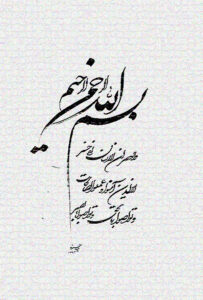 بسم الله الرحمن الرحیم
والعصر ان الانسان لفی خسر
الا الذین آمنوا و عملوا الصالحات
و تواصوا بالحق و تواصوا بالصبر